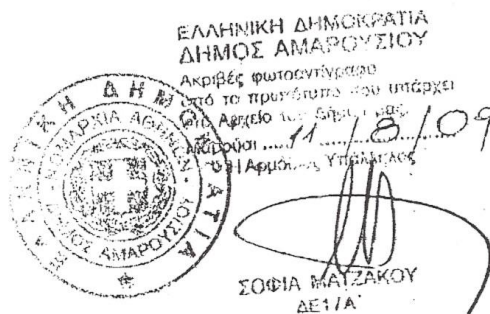 ΕΛΛΗΝΙΚΗ ΔΗΜΟΚΡΑΤΙΑ
ΔΗΜΟΣ ΑΜΑΡΟΥΣΙΟΥ
Ακριβές φωτοαντίγραφο
από το πρωτότυπο που υπάρχει
στο Αρχείο του Δήμου μας
Μαρούσι 11/8/09
Αρμόδιος Υπάλληλος
ΣΟΦΙΑ ΜΑΤΖΑΚΟΥ
ΔΕ1/Α΄
ΕΛΛΗΝΙΚΗ ΔΗΜΟΚΡΑΤΙΑ
ΝΟΜΑΡΧΙΑ ΑΘΗΝΩΝ
ΔΗΜΟΣ ΑΜΑΡΟΥΣΙΟΥ